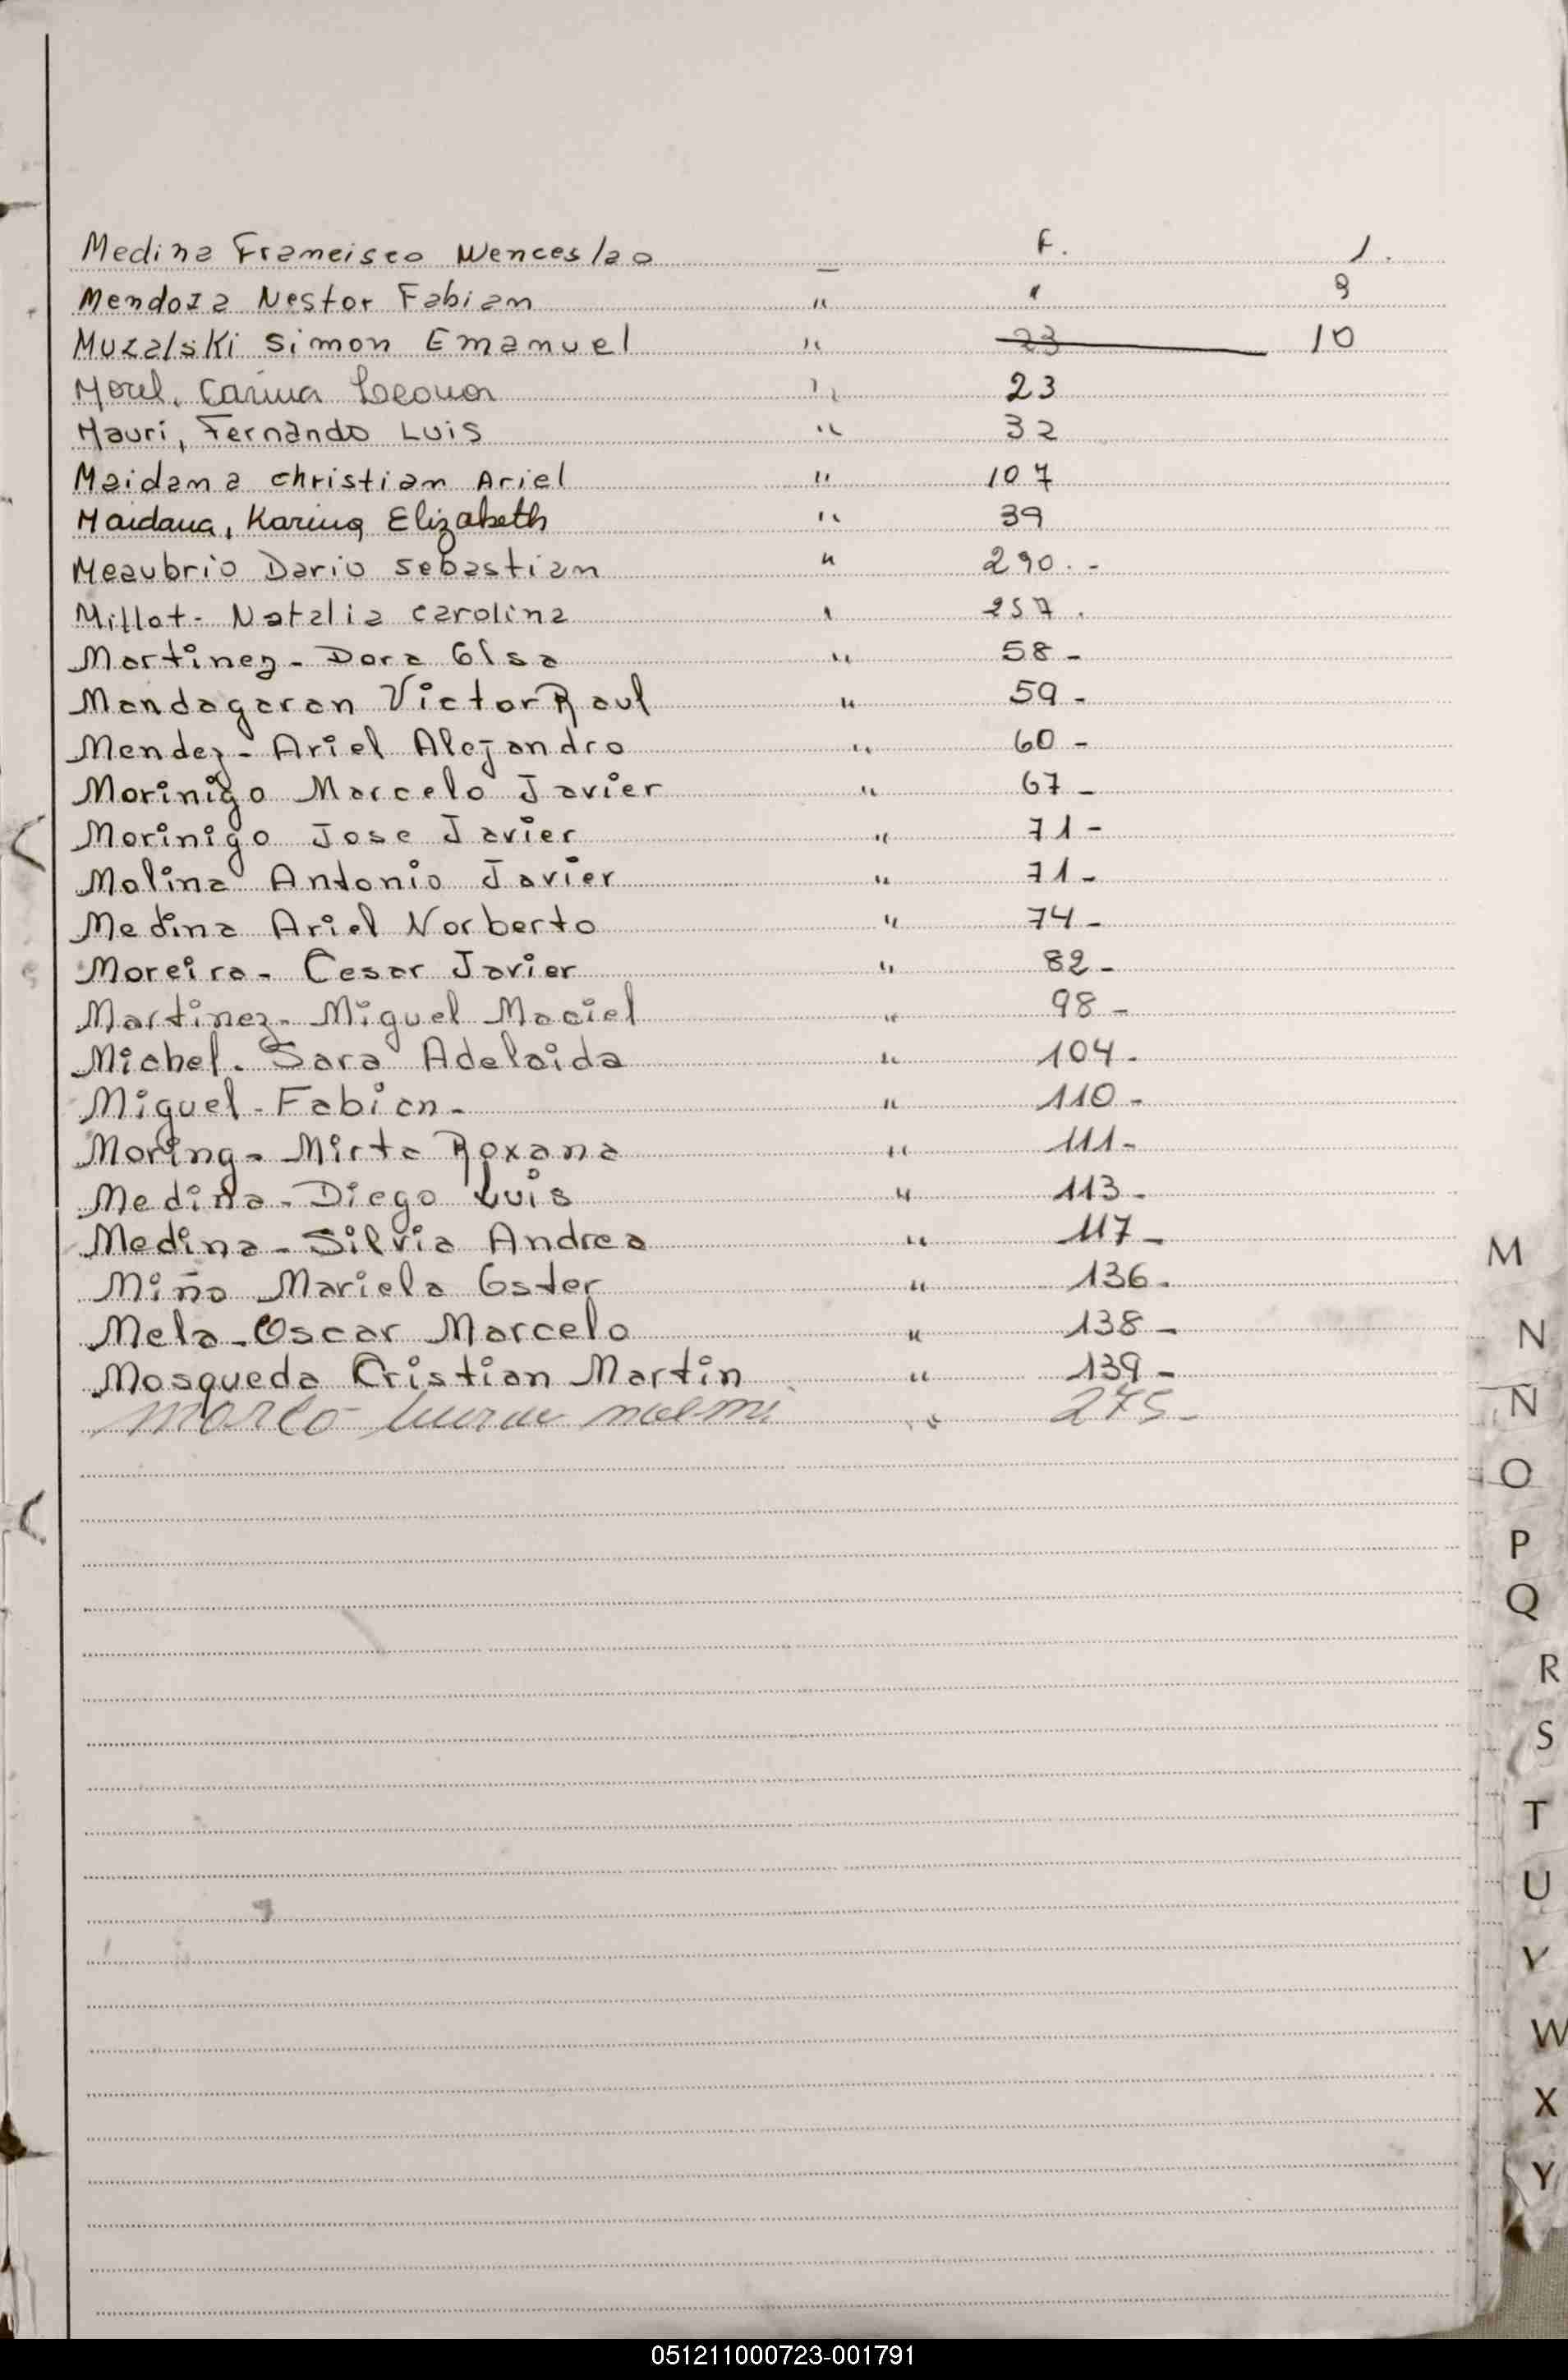 Medina Francisco Wenceslao — F. 1.
Mendoza Nestor Fabian " " 9
Muzalski Simon Emanuel " 23 10
Morel, Carina Leonor " 23
Mauri, Fernando Luis " 32
Maidana christian Ariel " 107
Maidana, Karina Elizabeth " 39
Meaubrio Dario Sebastian " 290.-
Millot- Natalia carolina " 257.
Martinez - Dora Elsa " 58-
Mandagaran Victor Raul " 59-
Mendez - Ariel Alejandro " 60-
Morinigo Marcelo Javier " 67-
Morinigo Jose Javier " 71-
Molina Antonio Javier " 71-
Medina Ariel Norberto " 74-
Moreira - Cesar Javier " 82-
Martinez - Miguel Maciel " 98-
Michel. Sara Adelaida " 104-
Miguel - Fabian - " 110-
Moring - Mirta Roxana " 111-
Medina - Diego Luis " 113-
Medina - Silvia Andrea " 117-
Miño Mariela Ester " 136-
Mela - Oscar Marcelo " 138-
Mosqueda Cristian Martin " 139-
" 275-
M
N
Ñ
O
P
Q
R
S
T
U
V
W
X
Y
051211000723-001791